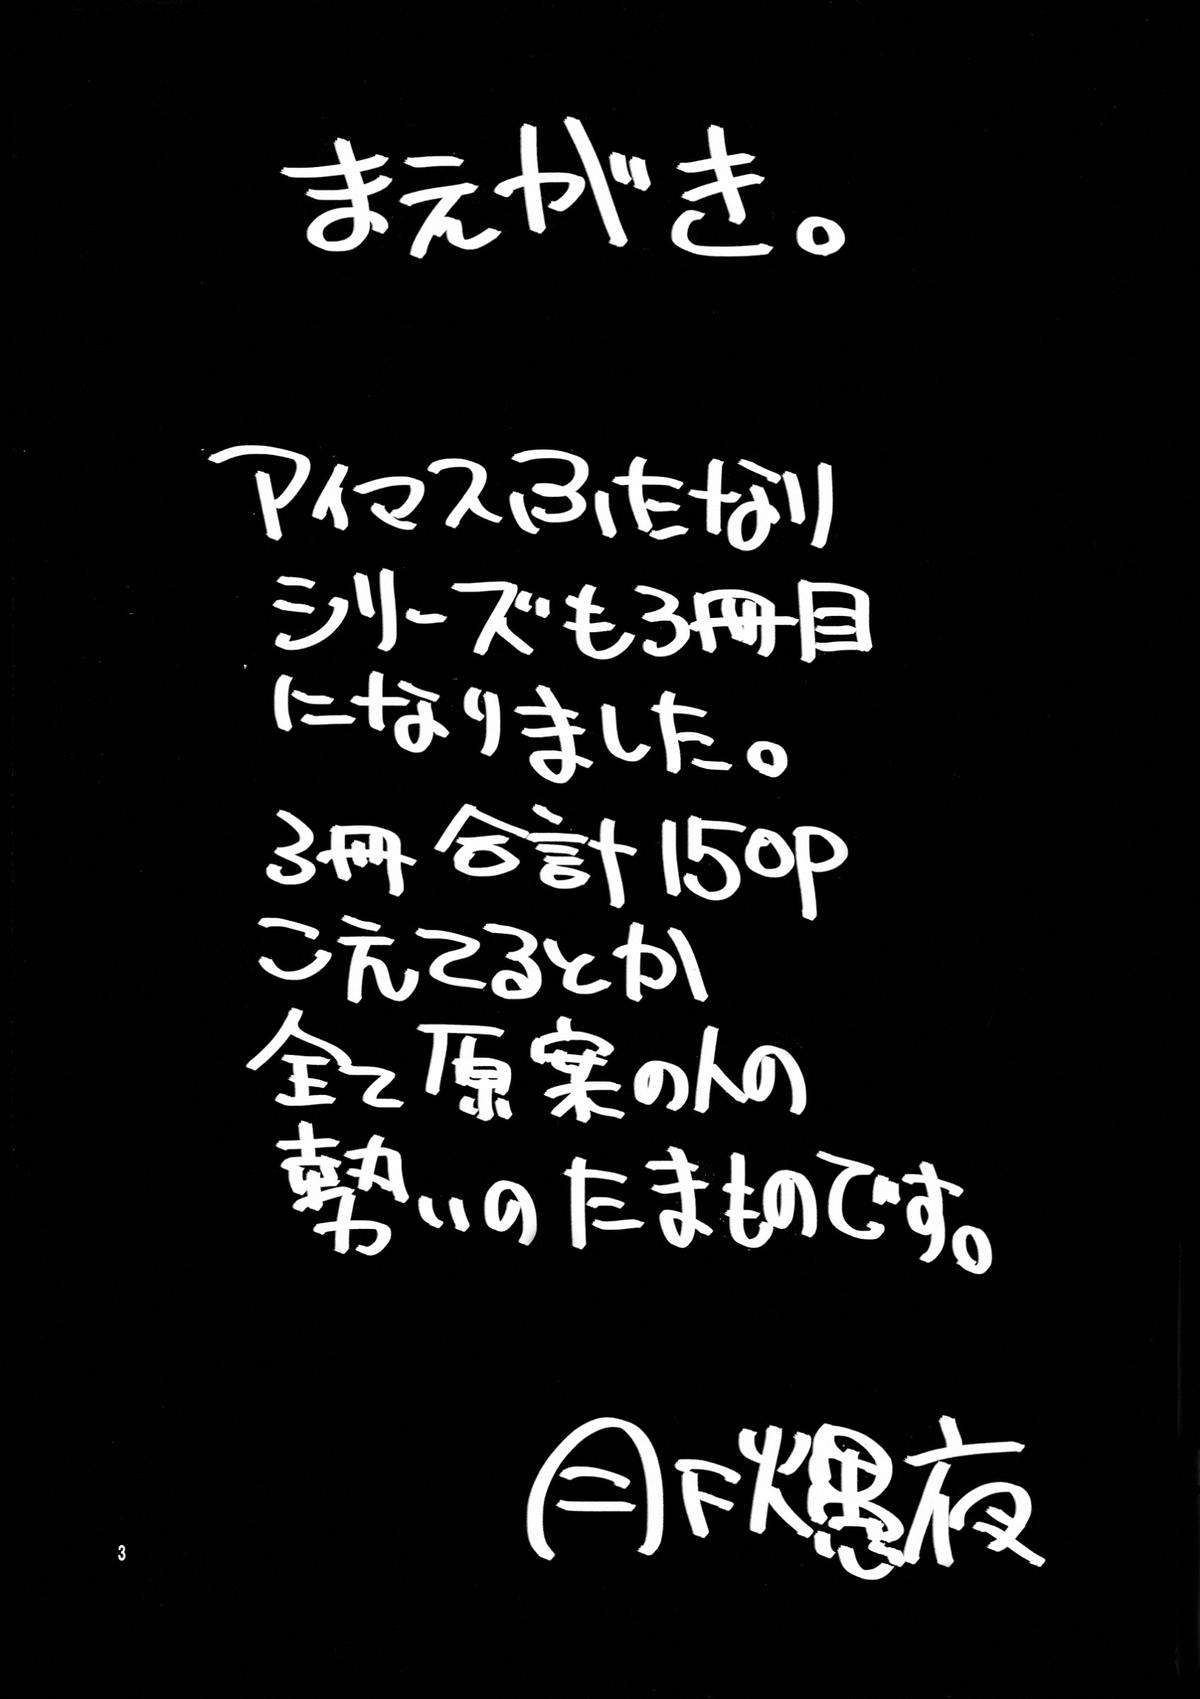 まえがき。
アイマスふたなり
シリーズも3冊目
になりました。
3冊合計150P
こえてるとか
全て原案の人の
勢いのたまものです。
月下熄夜
3